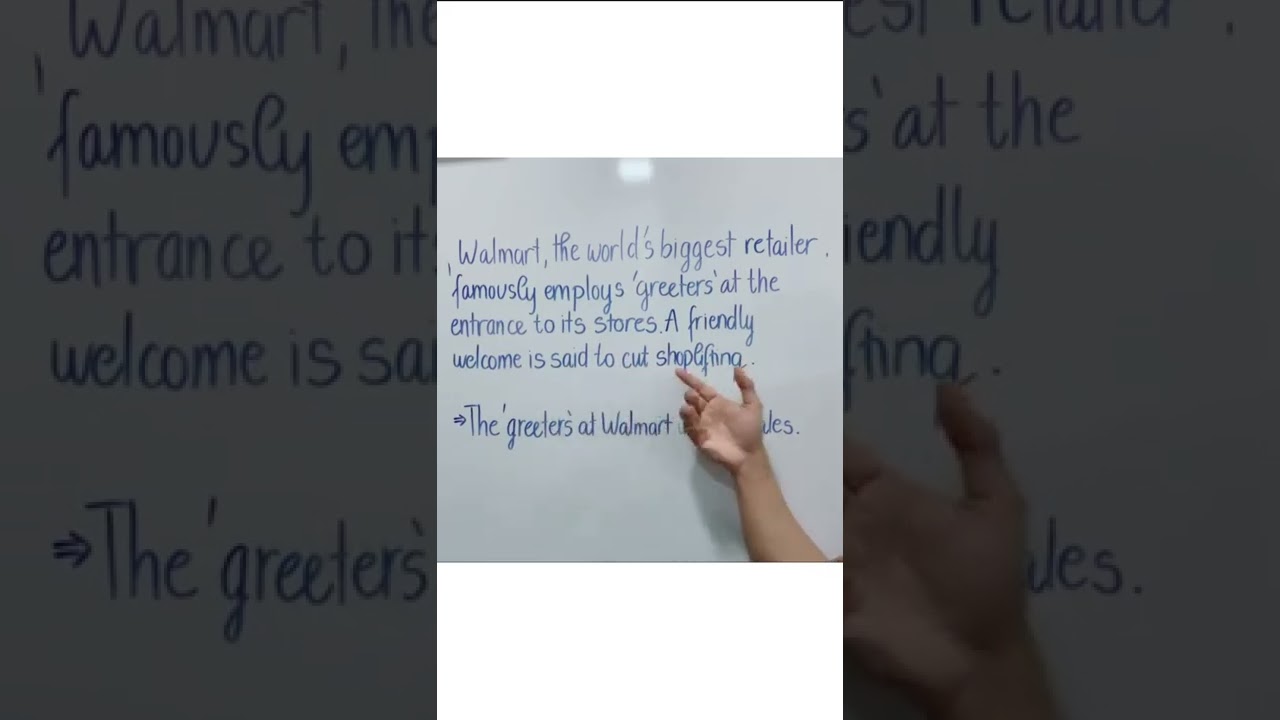 Walmart, the world's biggest retailer.
'famously employs 'greeters' at the
entrance to its stores. A friendly
welcome is said to cut shoplifting.
⇒ The 'greeters' at Walmart